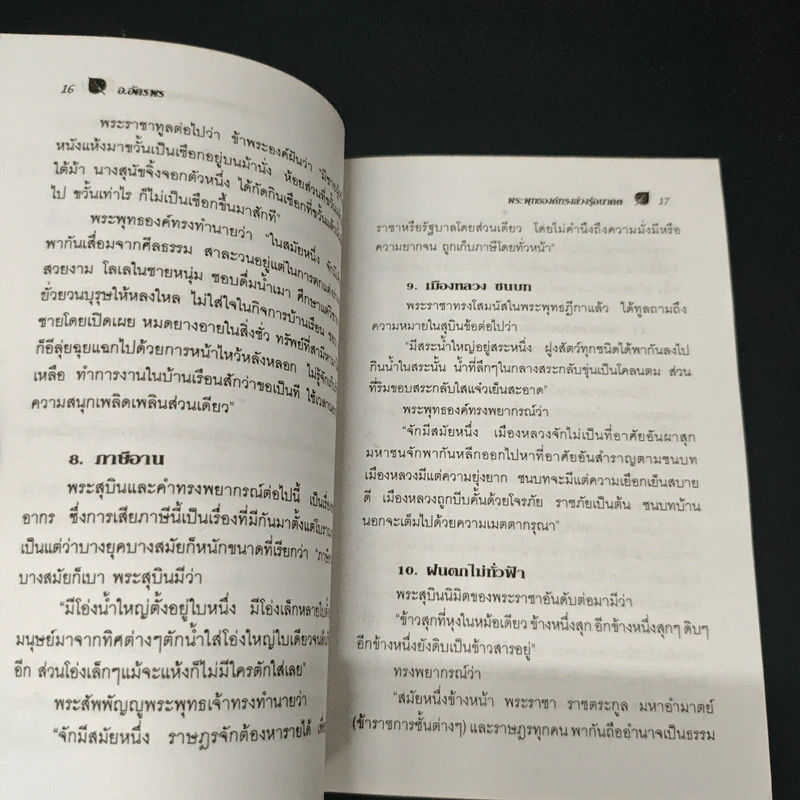 16 อ.อัครพร
พระราชาทูลต่อไปว่า ข้าพระองค์ฝันว่า
หนังแห้งมาขวั้นเป็นเชือกอยู่บนม้านั่ง ห้อยส่วนที่ขวั้น
ใต้ม้า นางสุนัขจิ้งจอกตัวหนึ่ง ได้กัดกินเชือกที่ขวั้นแล้ว
ไป ขวั้นเท่าไร ก็ไม่เป็นเชือกขึ้นมาสักที"
พระพุทธองค์ทรงทำนายว่า "ในสมัยหนึ่ง จัก
พากันเสื่อมจากศีลธรรม สาละวนอยู่แต่ในการตกแต่ง
สวยงาม โลเลในชายหนุ่ม ชอบดื่มน้ำเมา ศึกษาแต่
ยั่วยวนบุรุษให้หลงใหล ไม่ใส่ใจในกิจการบ้านเรือน
ชายโดยเปิดเผย หมดยางอายในสิ่งชั่ว ทรัพย์ที่สามี
ก็อีลุ่ยฉุยแฉกไปด้วยการหน้าไหว้หลังหลอก ไม่รู้จัก
เหลือ ทำการงานในบ้านเรือนสักว่าขอเป็นที ใช้เวลา
ความสนุกเพลิดเพลินส่วนเดียว"
8. ภาษีอาน
พระสุบินและคำทรงพยากรณ์ต่อไปนี้ เป็นเรื่อง
อากร ซึ่งการเสียภาษีนี้เป็นเรื่องที่มีกันมาตั้งแต่โบราณ
เป็นแต่ว่าบางยุคบางสมัยก็หนักขนาดที่เรียกว่า
บางสมัยก็เบา พระสุบินมีว่า
"มีโอ่งน้ำใหญ่ตั้งอยู่ใบหนึ่ง มีโอ่งเล็กหลายใบ
มนุษย์มาจากทิศต่างๆตักน้ำใส่โอ่งใหญ่ใบเดียวจน
อีก ส่วนโอ่งเล็กๆแม้จะแห้งก็ไม่มีใครตักใส่เลย"
พระสัพพัญญูพระพุทธเจ้าทรงทำนายว่า
"จักมีสมัยหนึ่ง ราษฎรจักต้องหารายได้
พระพุทธองค์ทรงล่วงรู้อนาคต 17
ราชาหรือรัฐบาลโดยส่วนเดียว โดยไม่คำนึงถึงความมั่งมีหรือ
ความยากจน ถูกเก็บภาษีโดยทั่วหน้า"
9. เมืองหลวง ชนบท
พระราชาทรงโสมนัสในพระพุทธฎีกาแล้ว ได้ทูลถามถึง
ความหมายในสุบินข้อต่อไปว่า
"มีสระน้ำใหญ่อยู่สระหนึ่ง ฝูงสัตว์ทุกชนิดได้พากันลงไป
กินน้ำในสระนั้น น้ำที่ลึกๆในกลางสระกลับขุ่นเป็นโคลนตม ส่วน
ที่ริมขอบสระกลับใสแจ๋วเย็นสะอาด"
พระพุทธองค์ทรงพยากรณ์ว่า
"จักมีสมัยหนึ่ง เมืองหลวงจักไม่เป็นที่อาศัยอันผาสุก
มหาชนจักพากันหลีกออกไปหาที่อาศัยอันสำราญตามชนบท
เมืองหลวงมีแต่ความยุ่งยาก ชนบทจะมีแต่ความเยือกเย็นสบาย
ดี เมืองหลวงถูกบีบคั้นด้วยโจรภัย ราชภัยเป็นต้น ชนบทบ้าน
นอกจะเต็มไปด้วยความเมตตากรุณา"
10. ฝนตกไม่ทั่วฟ้า
พระสุบินนิมิตของพระราชาอันดับต่อมามีว่า
"ข้าวสุกที่หุงในหม้อเดียว ข้างหนึ่งสุก อีกข้างหนึ่งสุกๆ ดิบๆ
อีกข้างหนึ่งยังดิบเป็นข้าวสารอยู่"
ทรงพยากรณ์ว่า
"สมัยหนึ่งข้างหน้า พระราชา ราชตระกูล มหาอำมาตย์
(ข้าราชการชั้นต่างๆ) และราษฎรทุกคน พากันถืออำนาจเป็นธรรม